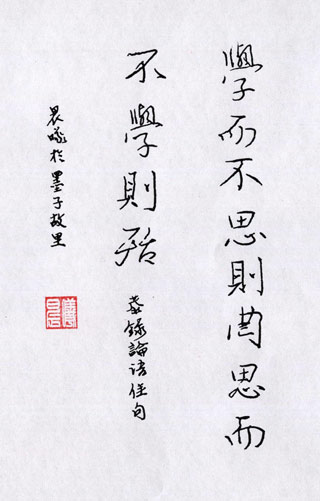 學而不思則罔思而
不學則殆 恭錄論語佳句
晨曦於墨子故里